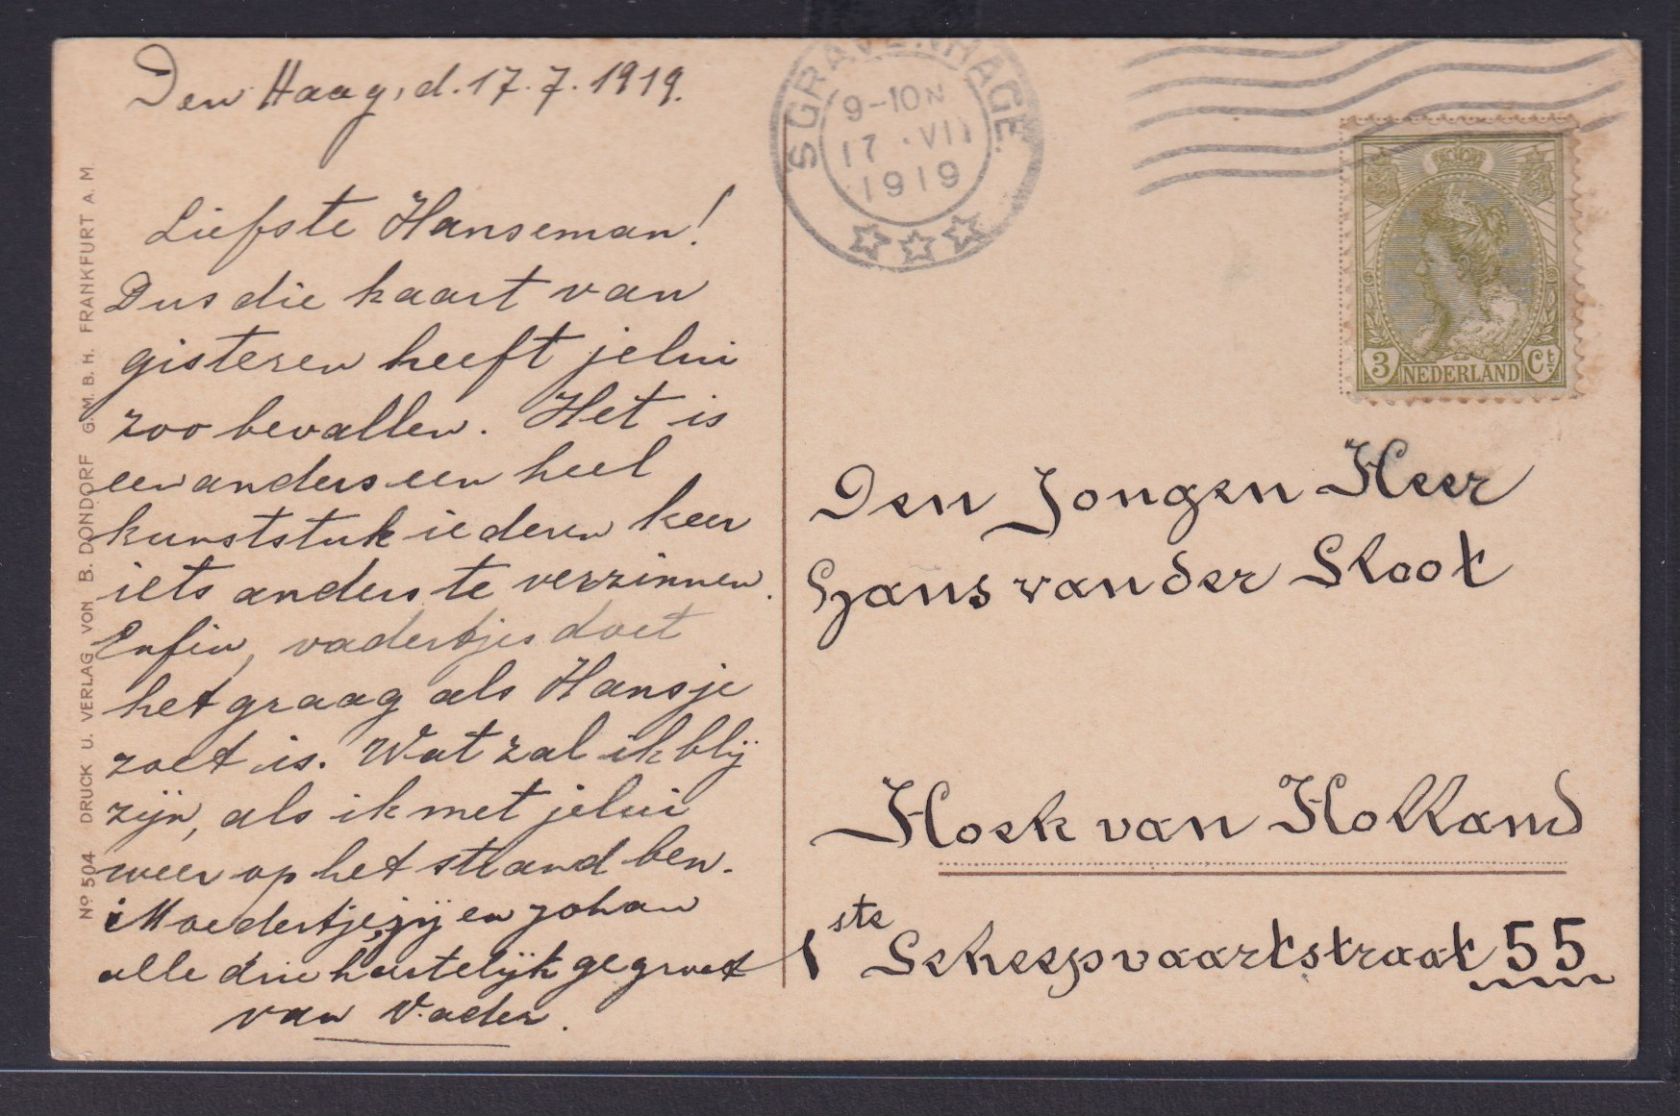 Den Haag, d. 17.7.1919.
Liefste Hanseman!
Dus die kaart van
gisteren heeft jelui
zoo bevallen. Het is
een anders een heel
kunststuk iederen keer
iets anders te verzinnen.
Enfin, vadertjes doet
het graag als Hansje
zoet is. Wat zal ik blij
zijn, als ik met jelui
weer op het strand ben.
Moedertje, jij en Johan
alle drie hartelijk gegroet
van Vader.
No 504 DRUCK U. VERLAG VON B. DONDORF G.M.B.H. FRANKFURT A.M
SGRAVENHAGE.
9-10N
17 · VII
1919
3 NEDERLAND Ct
Den Jongen Heer
Hans van der Sloot
Hoek van Holland
1ste Scheepvaartstraat 55